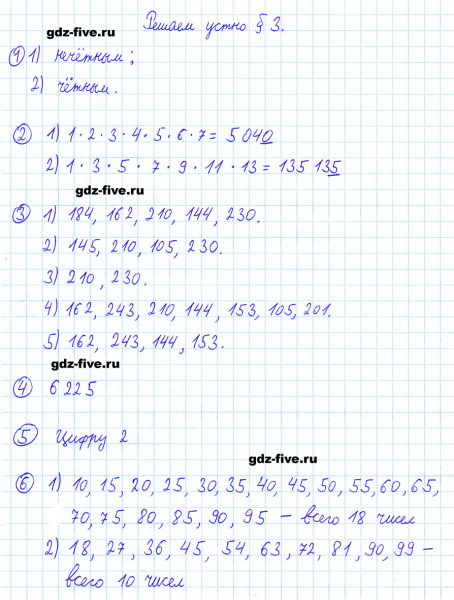 Решаем устно § 3.
gdz-five.ru
1 1) нечётным;
2) чётным.
2 1) 1 · 2 · 3 · 4 · 5 · 6 · 7 = 5 040
2) 1 · 3 · 5 · 7 · 9 · 11 · 13 = 135 135
gdz-five.ru
3 1) 184, 162, 210, 144, 230.
2) 145, 210, 105, 230.
3) 210, 230.
4) 162, 243, 210, 144, 153, 105, 201.
5) 162, 243, 144, 153.
gdz-five.ru
4 6 225
5 Цифру 2
gdz-five.ru
6 1) 10, 15, 20, 25, 30, 35, 40, 45, 50, 55, 60, 65,
70, 75, 80, 85, 90, 95 – всего 18 чисел
2) 18, 27, 36, 45, 54, 63, 72, 81, 90, 99 –
всего 10 чисел